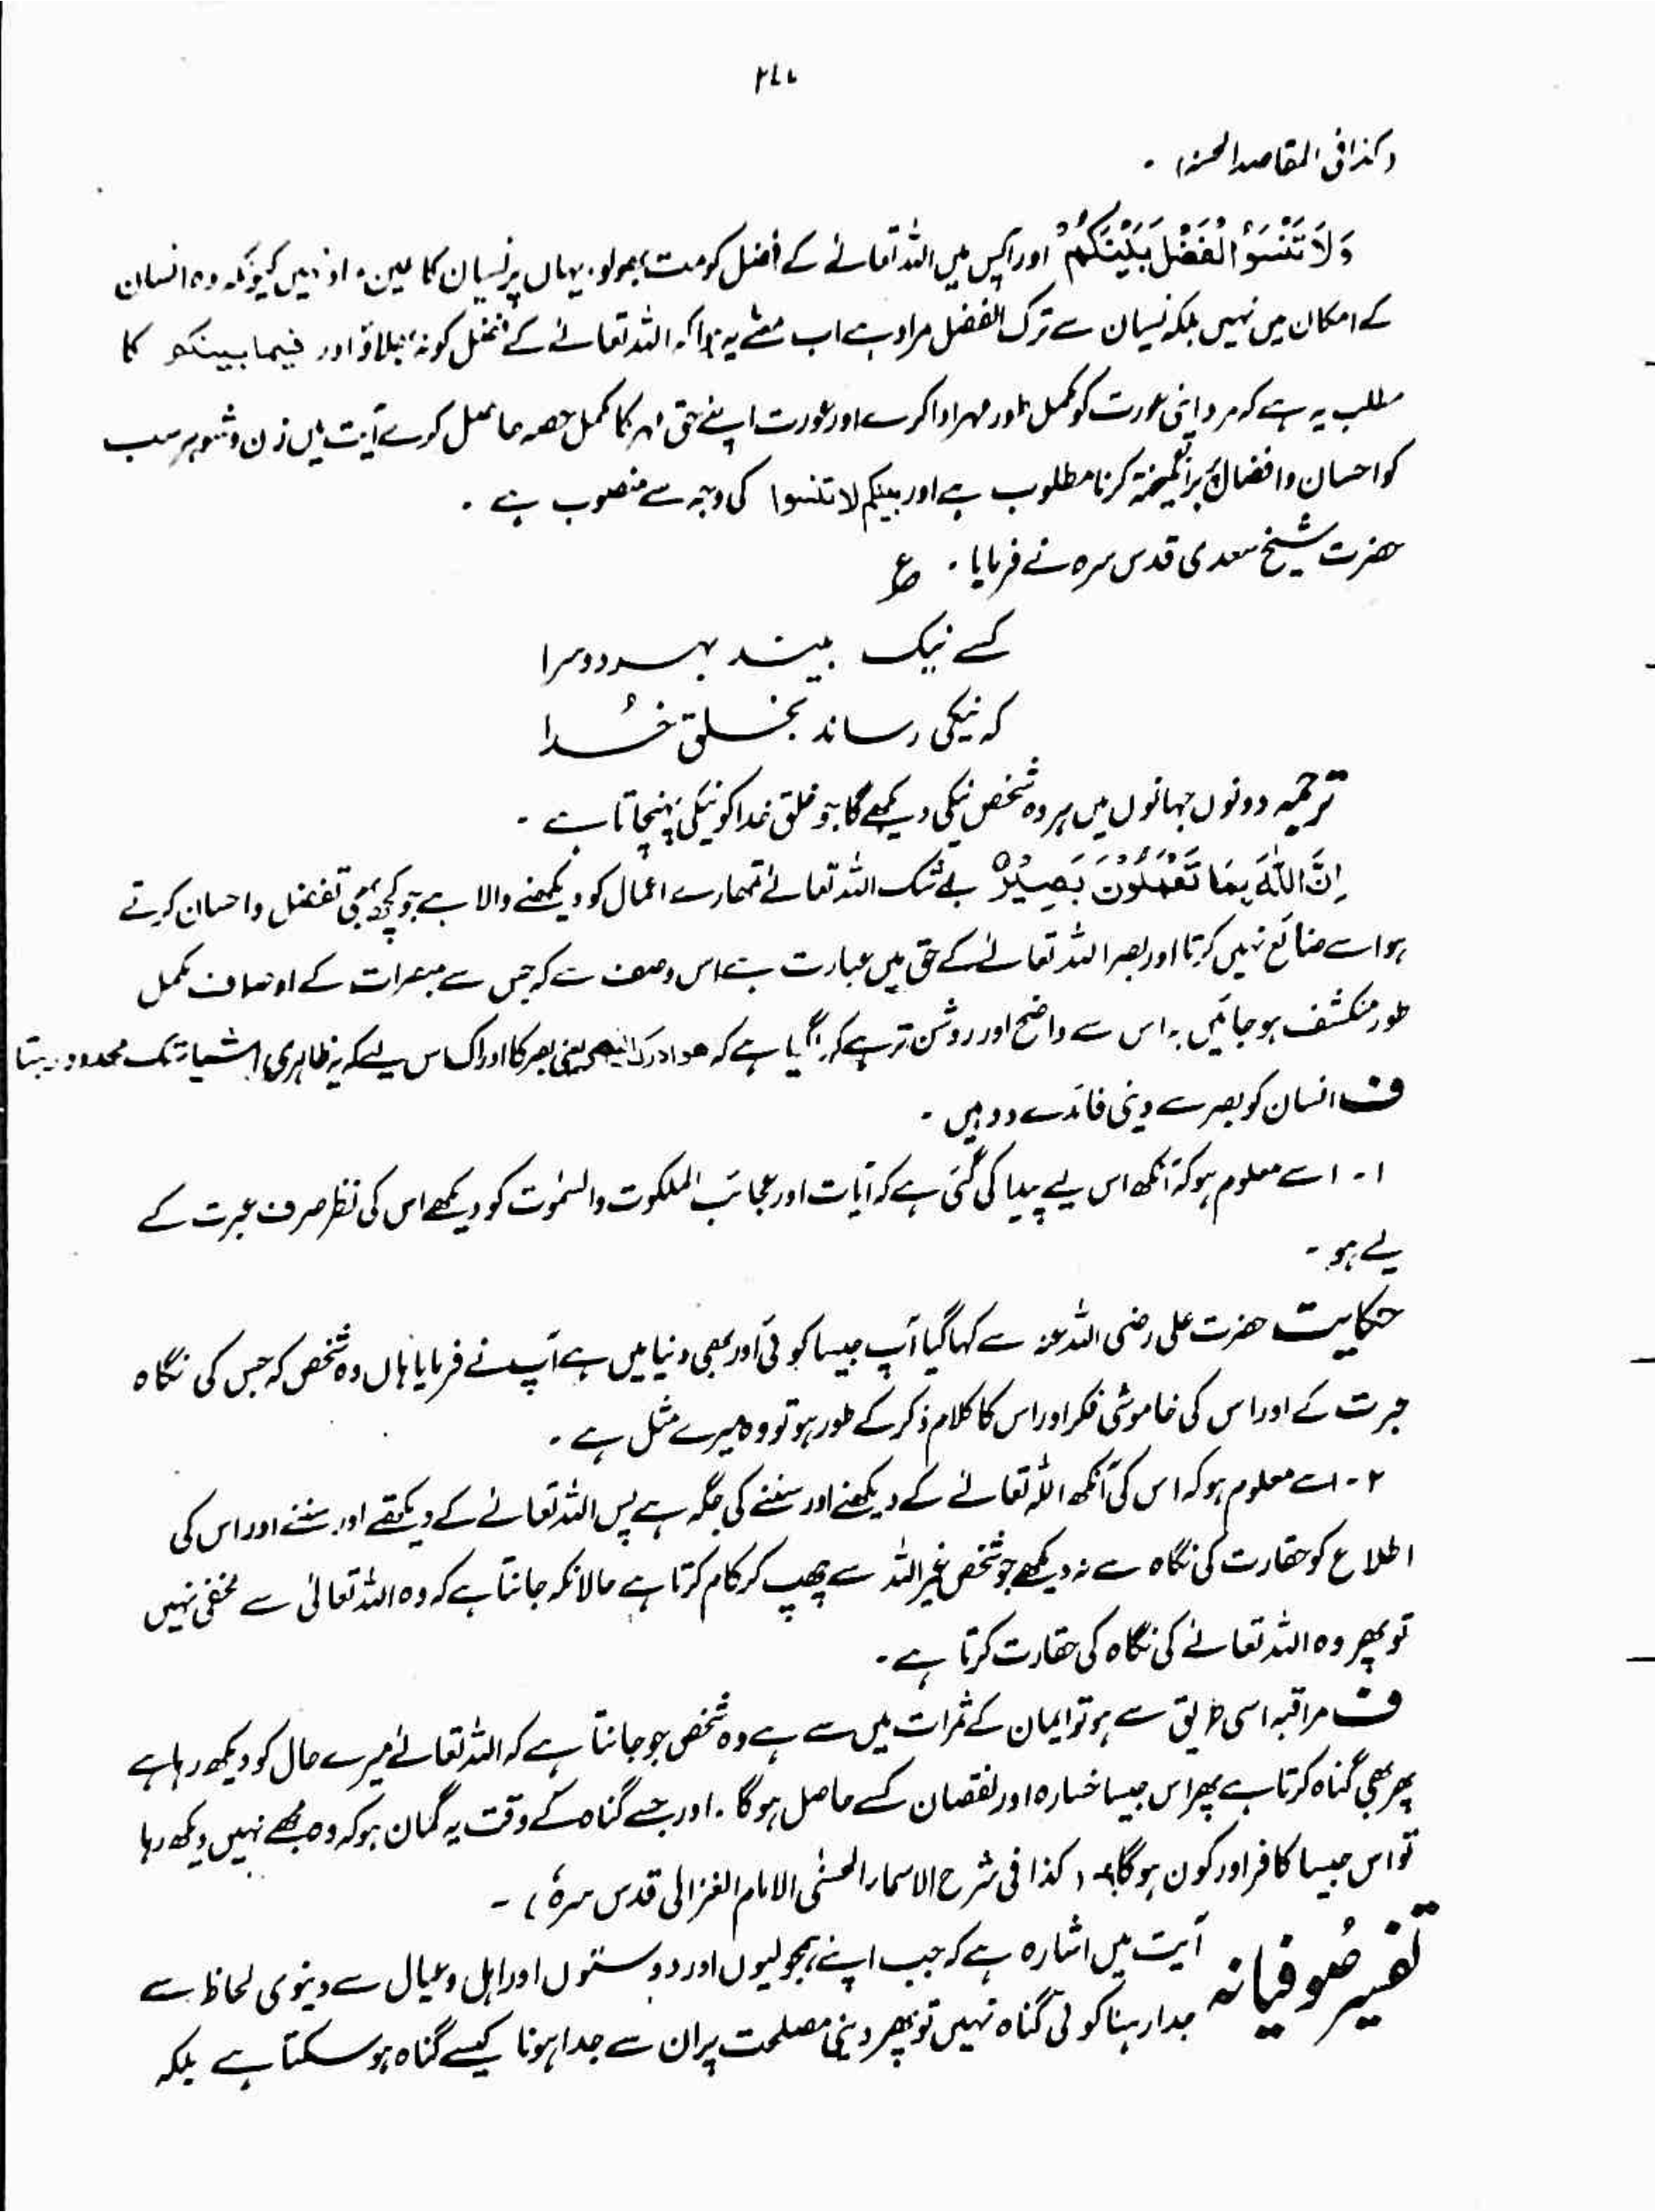 (کذا فی المقاصد الحسنہ) ۔
وَلَا تَنْسَوُا الْفَضْلَ بَيْنَكُمْ اور آپس میں اللہ تعالےٰ کے فضل کو مت بھولو۔ یہاں پر نسیان کا عین مراد نہیں کیونکہ وہ انسان
کے امکان میں نہیں بلکہ نسیان سے ترک الفضل مراد ہے اب معنے یہ ہوا کہ اللہ تعالےٰ کے فضل کو نہ بھلاؤ اور فیما بینکم کا
مطلب یہ ہے کہ مرد اپنی عورت کو مکمل طور مہر ادا کرے اور عورت اپنے حق مہر کا مکمل حصہ حاصل کرے آیت میں زن و شوہر سب
کو احسان و افضال پر برانگیختہ کرنا مطلوب ہے اور بینکم لا تنسوا کی وجہ سے منصوب ہے ۔
حضرت شیخ سعدی قدس سرہ نے فرمایا ۔ ع
کسے نیک بیند بہر دو سرا
کہ نیکی رساند بخلق خُدا
ترجمہ دونوں جہانوں میں ہر وہ شخص نیکی دیکھے گا جو خلق خدا کو نیکی پہنچاتا ہے ۔
اِنَّ اللّٰهَ بِمَا تَعْمَلُوْنَ بَصِيْرٌ بے شک اللہ تعالےٰ تمھارے اعمال کو دیکھنے والا ہے جو کچھ بھی تفضل و احسان کرتے
ہو اسے ضائع نہیں کرتا اور بصر اللہ تعالےٰ کے حق میں عبارت ہے اس وصف سے کہ جس سے مبصرات کے اوصاف مکمل
طور منکشف ہو جائیں یہ اس سے واضح اور روشن تر ہے کہ کہا گیا ہے کہ ھو ادرک البصر یعنی بصر کا ادراک اس لیے کہ یہ ظاہری اشیاء تک محدود رہتا
ف انسان کو بصر سے دینی فائدے دو ہیں ۔
۱ - اسے معلوم ہو کہ آنکھ اس لیے پیدا کی گئی ہے کہ آیات اور عجائب الملکوت والسمٰوت کو دیکھے اس کی نظر صرف عبرت کے
لیے ہو ۔
حکایت حضرت علی رضی اللہ عنہ سے کہا گیا آپ جیسا کوئی اور بھی دنیا میں ہے آپ نے فرمایا ہاں وہ شخص کہ جس کی نگاہ
عبرت کے اور اس کی خاموشی فکر اور اس کا کلام ذکر کے طور ہو تو وہ میرے مثل ہے ۔
۲ - اسے معلوم ہو کہ اس کی آنکھ اللہ تعالےٰ کے دیکھنے اور سننے کی جگہ ہے پس اللہ تعالےٰ کے دیکھنے اور سننے اور اس کی
اطلاع کو حقارت کی نگاہ سے نہ دیکھے جو شخص غیر اللہ سے چھپ کر کام کرتا ہے حالانکہ جانتا ہے کہ وہ اللہ تعالیٰ سے مخفی نہیں
تو پھر وہ اللہ تعالےٰ کی نگاہ کی حقارت کرتا ہے ۔
ف مراقبہ اسی طریق سے ہو تو ایمان کے ثمرات میں سے ہے وہ شخص جو جانتا ہے کہ اللہ تعالےٰ میرے حال کو دیکھ رہا ہے
پھر بھی گناہ کرتا ہے پھر اس جیسا خسارہ اور نقصان کسے حاصل ہوگا ۔ اور جسے گناہ کے وقت یہ گمان ہو کہ وہ مجھے نہیں دیکھ رہا
تو اس جیسا کافر اور کون ہوگا؟ (کذا فی شرح الاسماء الحسنٰی الامام الغزالی قدس سرہٗ) ۔
تفسیر صُوفیانہ آیت میں اشارہ ہے کہ جب اپنے ہمجولیوں اور دوستوں اور اہل و عیال سے دینوی لحاظ سے
جدا رہنا کوئی گناہ نہیں تو پھر دینی مصلحت پر ان سے جدا ہونا کیسے گناہ ہو سکتا ہے بلکہ